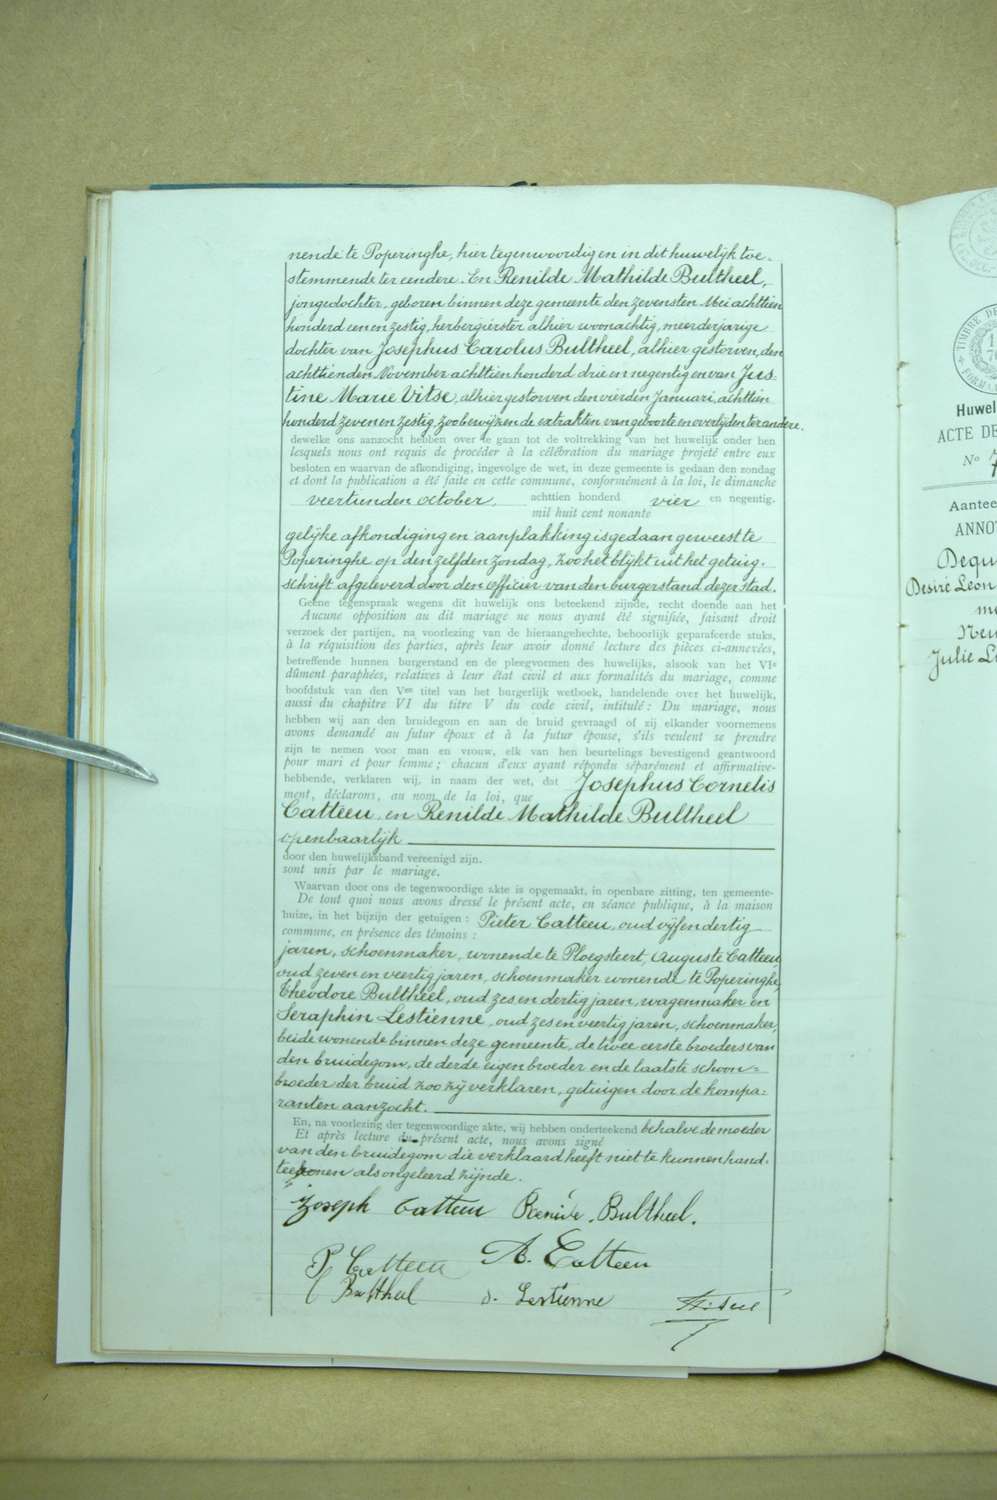 nende te Poperinghe, hier tegenwoordig en in dit huwelijk toe-
stemmende ter eendere. En Renilde Mathilde Bultheel,
jongedochter, geboren binnen deze gemeente den zevensten Mei achttien
honderd een en zestig, herbergierster alhier woonachtig, meerderjarige
dochter van Josephus Carolus Bultheel, alhier gestorven, den
achttienden November achttien honderd drie en negentig en van Jus-
tine Marie Vitse, alhier gestorven den vierden Januari, achttien
honderd zeven en zestig, zoo bewijzen de extrakten van geboorte en overlijden ter andere.
dewelke ons aanzocht hebben over te gaan tot de voltrekking van het huwelijk onder hen
lesquels nous ont requis de procéder à la célébration du mariage projeté entre eux
besloten en waarvan de afkondiging, ingevolge de wet, in deze gemeente is gedaan den zondag
et dont la publication a été faite en cette commune, conformément à la loi, le dimanche
veertienden october, achttien honderd vier en negentig.
mil huit cent nonante
gelijke afkondiging en aanplakking is gedaan geweest te
Poperinghe op den zelfden zondag, zoo het blijkt uit het getuig-
schrift afgeleverd door den officier van den burgerstand dezer stad.
Geene tegenspraak wegens dit huwelijk ons beteekend zijnde, recht doende aan het
Aucune opposition au dit mariage ne nous ayant été signifiée, faisant droit
verzoek der partijen, na voorlezing van de hieraangehechte, behoorlijk geparafeerde stuks,
à la réquisition des parties, après leur avoir donné lecture des pièces ci-annexées,
betreffende hunnen burgerstand en de pleegvormen des huwelijks, alsook van het VIe
dûment paraphées, relatives à leur état civil et aux formalités du mariage, comme
hoofdstuk van den Ven titel van het burgerlijk wetboek, handelende over het huwelijk,
aussi du chapitre VI du titre V du code civil, intitulé : Du mariage, nous
hebben wij aan den bruidegom en aan de bruid gevraagd of zij elkander voornemens
avons demandé au futur époux et à la future épouse, s'ils veulent se prendre
zijn te nemen voor man en vrouw, elk van hen beurtelings bevestigend geantwoord
pour mari et pour femme ; chacun d'eux ayant répondu séparément et affirmative-
hebbende, verklaren wij, in naam der wet, dat Josephus Cornelis
ment, déclarons, au nom de la loi, que
Catteeu, en Renilde Mathilde Bultheel
openbaarlijk
door den huwelijksband vereenigd zijn.
sont unis par le mariage.
Waarvan door ons de tegenwoordige akte is opgemaakt, in openbare zitting, ten gemeente-
De tout quoi nous avons dressé le présent acte, en séance publique, à la maison
huize, in het bijzijn der getuigen : Pieter Catteeu, oud vijf en dertig
commune, en présence des témoins :
jaren, schoenmaker, wonende te Ploegsteert, Auguste Catteeu
oud zeven en veertig jaren, schoenmaker wonende te Poperinghe,
Theodore Bultheel, oud zes en dertig jaren, wagenmaker en
Seraphin Lestienne, oud zes en veertig jaren, schoenmaker,
beide wonende binnen deze gemeente, de twee eerste broeders van
den bruidegom, de derde eigen broeder en de laatste schoon=
broeder der bruid zoo zij verklaren, getuigen door de kompa-
ranten aanzocht.
En, na voorlezing der tegenwoordige akte, wij hebben onderteekend behalve de moeder
Et après lecture du présent acte, nous avons signé
van den bruidegom die verklaard heeft niet te kunnen hand-
teekenen als ongeleerd zijnde.
Joseph Catteeu Renilde Bultheel.
P Catteeu A. Catteeu
Bultheel S. Lestienne
TIMBRE DE
Huwel
ACTE DE
No
Aantee
ANNO
Dequ
Desiré Leon
Julie L